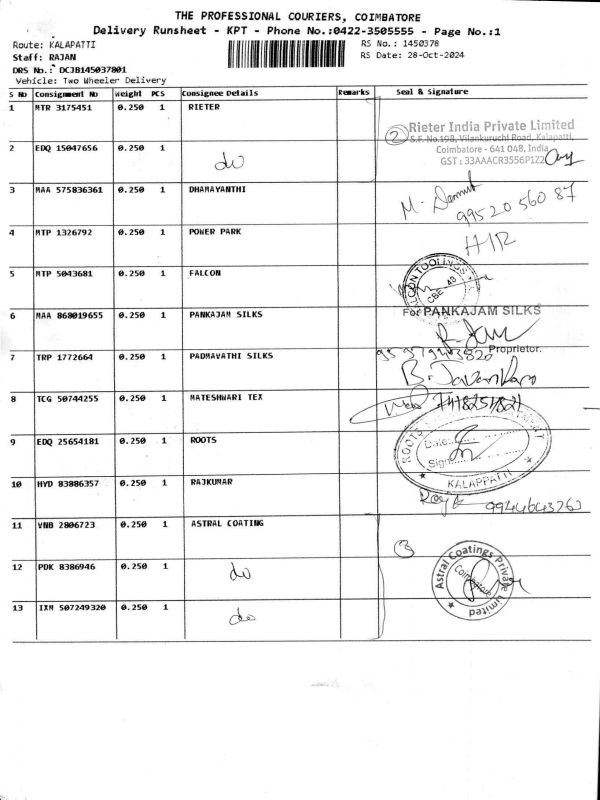 THE PROFESSIONAL COURIERS, COIMBATORE
Delivery Runsheet - KPT - Phone No.:0422-3505555 - Page No.:1
Route: KALAPATTI RS No.: 1450378
Staff: RAJAN RS Date: 28-Oct-2024
DRS No.: DCJB145037801
Vehicle: Two Wheeler Delivery
S No Consignment No Weight PCS Consignee Details Remarks Seal & Signature
1 MTR 3175451 0.250 1 RIETER
2 Rieter India Private Limited
S.F. No.198, Vilankuruchi Road, Kalapatti,
Coimbatore - 641 048, India
GST : 33AAACR3556P1Z2
2 EDQ 15047656 0.250 1 do
3 MAA 575836361 0.250 1 DHAMAYANTHI
99520 560 87
4 MTP 1326792 0.250 1 POWER PARK
5 MTP 5043681 0.250 1 FALCON
FALCON TOOLINGS
CBE
6 MAA 868019655 0.250 1 PANKAJAM SILKS
For PANKAJAM SILKS
Proprietor.
7 TRP 1772664 0.250 1 PADMAVATHI SILKS
8 TCG 50744255 0.250 1 MATESHWARI TEX
9 EDQ 25654181 0.250 1 ROOTS
ROOTS
Date:
Sign
KALAPPATTI
10 HYD 83886357 0.250 1 RAJKUMAR
9944643763
11 VNB 2806723 0.250 1 ASTRAL COATING
3
Astral Coatings Private Limited
Coimbatore
12 PDK 8386946 0.250 1 do
13 IXM 507249320 0.250 1 do